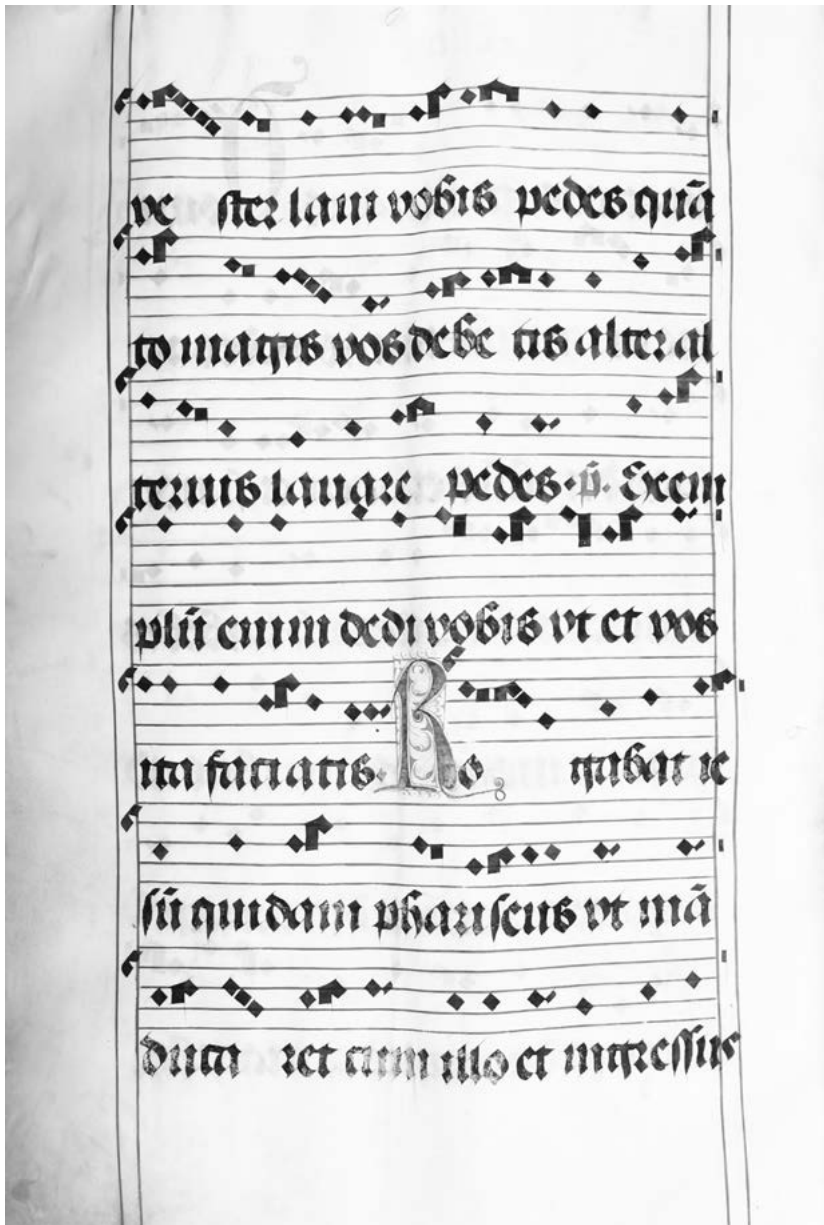 ve ster laui vobis pedes quā
to magis vos debe tis alter al
terius lauare pedes · p̄. Exem
plū enim dedi vobis vt et vos
ita faciatis. Ro gabat ie
sū quidam phariseus vt mā
duca ret cum illo et ingressus